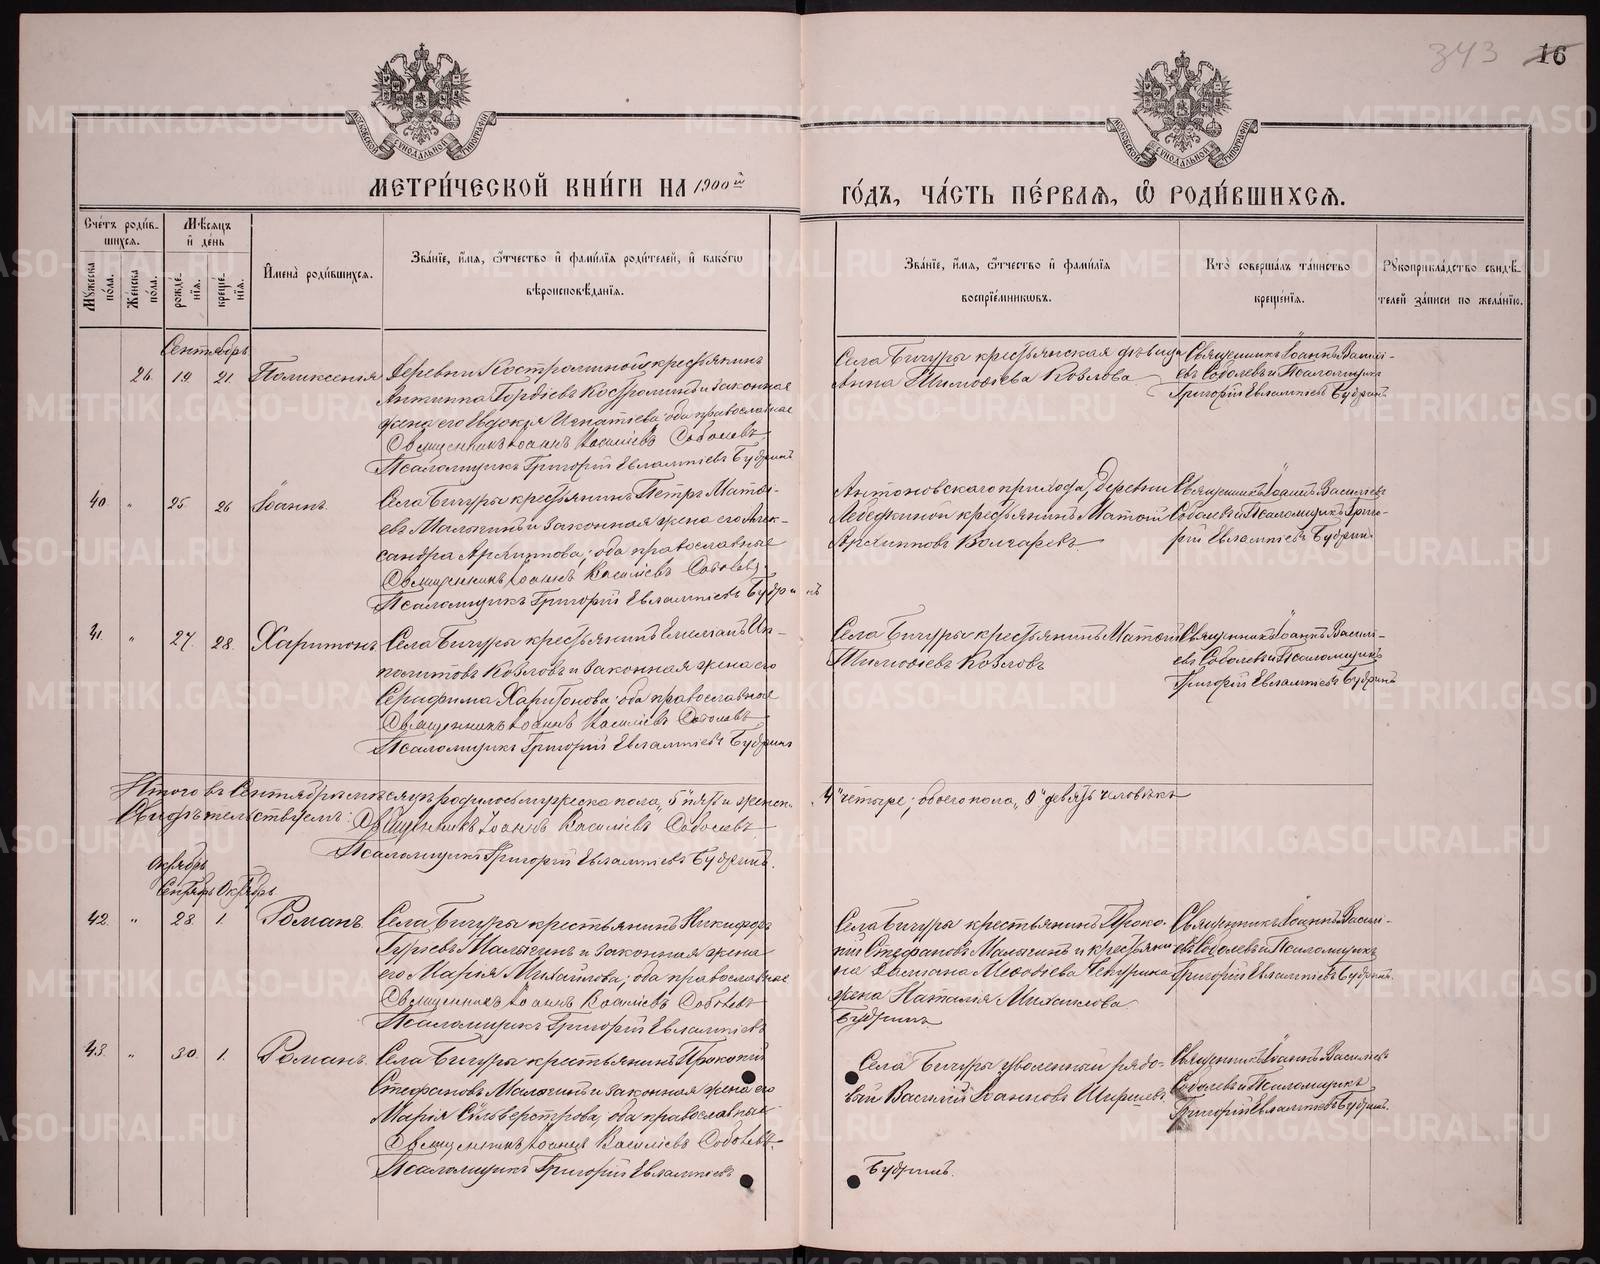 343 16
МОСКОВСКОЙ СѴНОДАЛЬНОЙ ТИПОГРАФІИ
МОСКОВСКОЙ СѴНОДАЛЬНОЙ ТИПОГРАФІИ
МЕТРИ́ЧЕСКОЙ КНИ́ГИ НА 1900й
ГО́ДЪ, ЧА́СТЬ ПЕ́РВАЯ, Ѡ҆ РОДИ́ВШИХСЯ.
Счётъ роди́вшихся.
Мꙋ́жеска по́ла.
Же́нска по́ла.
Мѣ́сяцъ и҆ де́нь
рожде́нїя.
креще́нїя.
И҆мена̀ роди́вшихся.
Зва́нїе, и҆́мя, ѻ҆́тчество и҆ фами́лїя роди́телей, и҆ како́гѡ
вѣроисповѣ́данїя.
Зва́нїе, и҆́мя, ѻ҆́тчество и҆ фами́лїя
воспрїе́мникѡвъ.
Кто̀ соверша́лъ та́инство
креще́нїя.
Рꙋкоприкла́дство свидѣ́телей за́писи по жела́нїю.
Сентябрь
26. 19. 21. Поликсенія
Деревни Костроминой крестьянинъ
Антипа Гордіевъ Костроминъ и законная
жена его Евдокія Игнатіева, оба православные
Священникъ Іоаннъ Василіевъ Соболевъ
Псаломщикъ Григорій Евлампіевъ Будринъ
Села Бичуры крестьянская дѣвица
Анна Тимовіева Козлова
Священникъ Іоаннъ Василі-
евъ Соболевъ и Псаломщикъ
Григорій Евлампіевъ Будринъ
40. " 25. 26 Іоаннъ.
Села Бичуры крестьянинъ Петръ Матѳі-
евъ Малыгинъ и законная жена его Алек-
сандра Архиппова; оба православные
Священникъ Іоаннъ Василіевъ Соболевъ
Псаломщикъ Григорій Евлампіевъ Будринъ
Антоновскаго прихода, деревни
Лебедкиной крестьянинъ Матѳій
Архипповъ Волгаревъ
Священникъ Іоаннъ Василіевъ
Соболевъ и Псаломщикъ Григо-
рій Евлампіевъ Будринъ.
41. " 27. 28. Харитонъ
Села Бичуры крестьянинъ Емеліанъ Ип-
политовъ Козловъ и законная жена его
Серафима Харитонова; оба православные
Священникъ Іоаннъ Василіевъ Соболевъ
Псаломщикъ Григорій Евлампіевъ Будринъ
Села Бичуры крестьянинъ Матѳій
Тимовіевъ Козловъ
Священникъ Іоаннъ Василі-
евъ Соболевъ и Псаломщикъ
Григорій Евлампіевъ Будринъ
Итого въ Сентябрѣ мѣсяцѣ родилось мужеска пола "5" пять и женск.
"4" четыре; обоего пола "9" девять человѣкъ
Свидѣтельствуемъ: Священникъ Іоаннъ Василіевъ Соболевъ
Псаломщикъ Григорій Евлампіевъ Будринъ.
Октябрь
Сентябрь Октябрь
42. " 28. 1. Романъ.
Села Бичуры крестьянинъ Никифоръ
Гурьевъ Малыгинъ и законная жена
его Марія Михайлова; оба православные
Священникъ Іоаннъ Василіевъ Соболевъ
Псаломщикъ Григорій Евлампіевъ
Будринъ
Села Бичуры крестьянинъ Проко-
пій Стефановъ Малыгинъ и крестьяни-
на Меѳодіева Чепурина
жена Наталія Михайлова
Священникъ Іоаннъ Василі-
евъ Соболевъ и Псаломщикъ
Григорій Евлампіевъ Будринъ.
43. " 30. 1. Романъ.
Села Бичуры крестьянинъ Прокопій
Стефановъ Малыгинъ и законная жена его
Марія Сильверстрова, оба православные
Священникъ Іоаннъ Василіевъ Соболевъ
Псаломщикъ Григорій Евлампіевъ
Будринъ.
Села Бичуры уволенный рядо-
вой Василій Іоанновъ Ширшевъ
Священникъ Іоаннъ Василіевъ
Соболевъ и Псаломщикъ
Григорій Евлампіевъ Будринъ.
METRIKI.GASO-URAL.RU